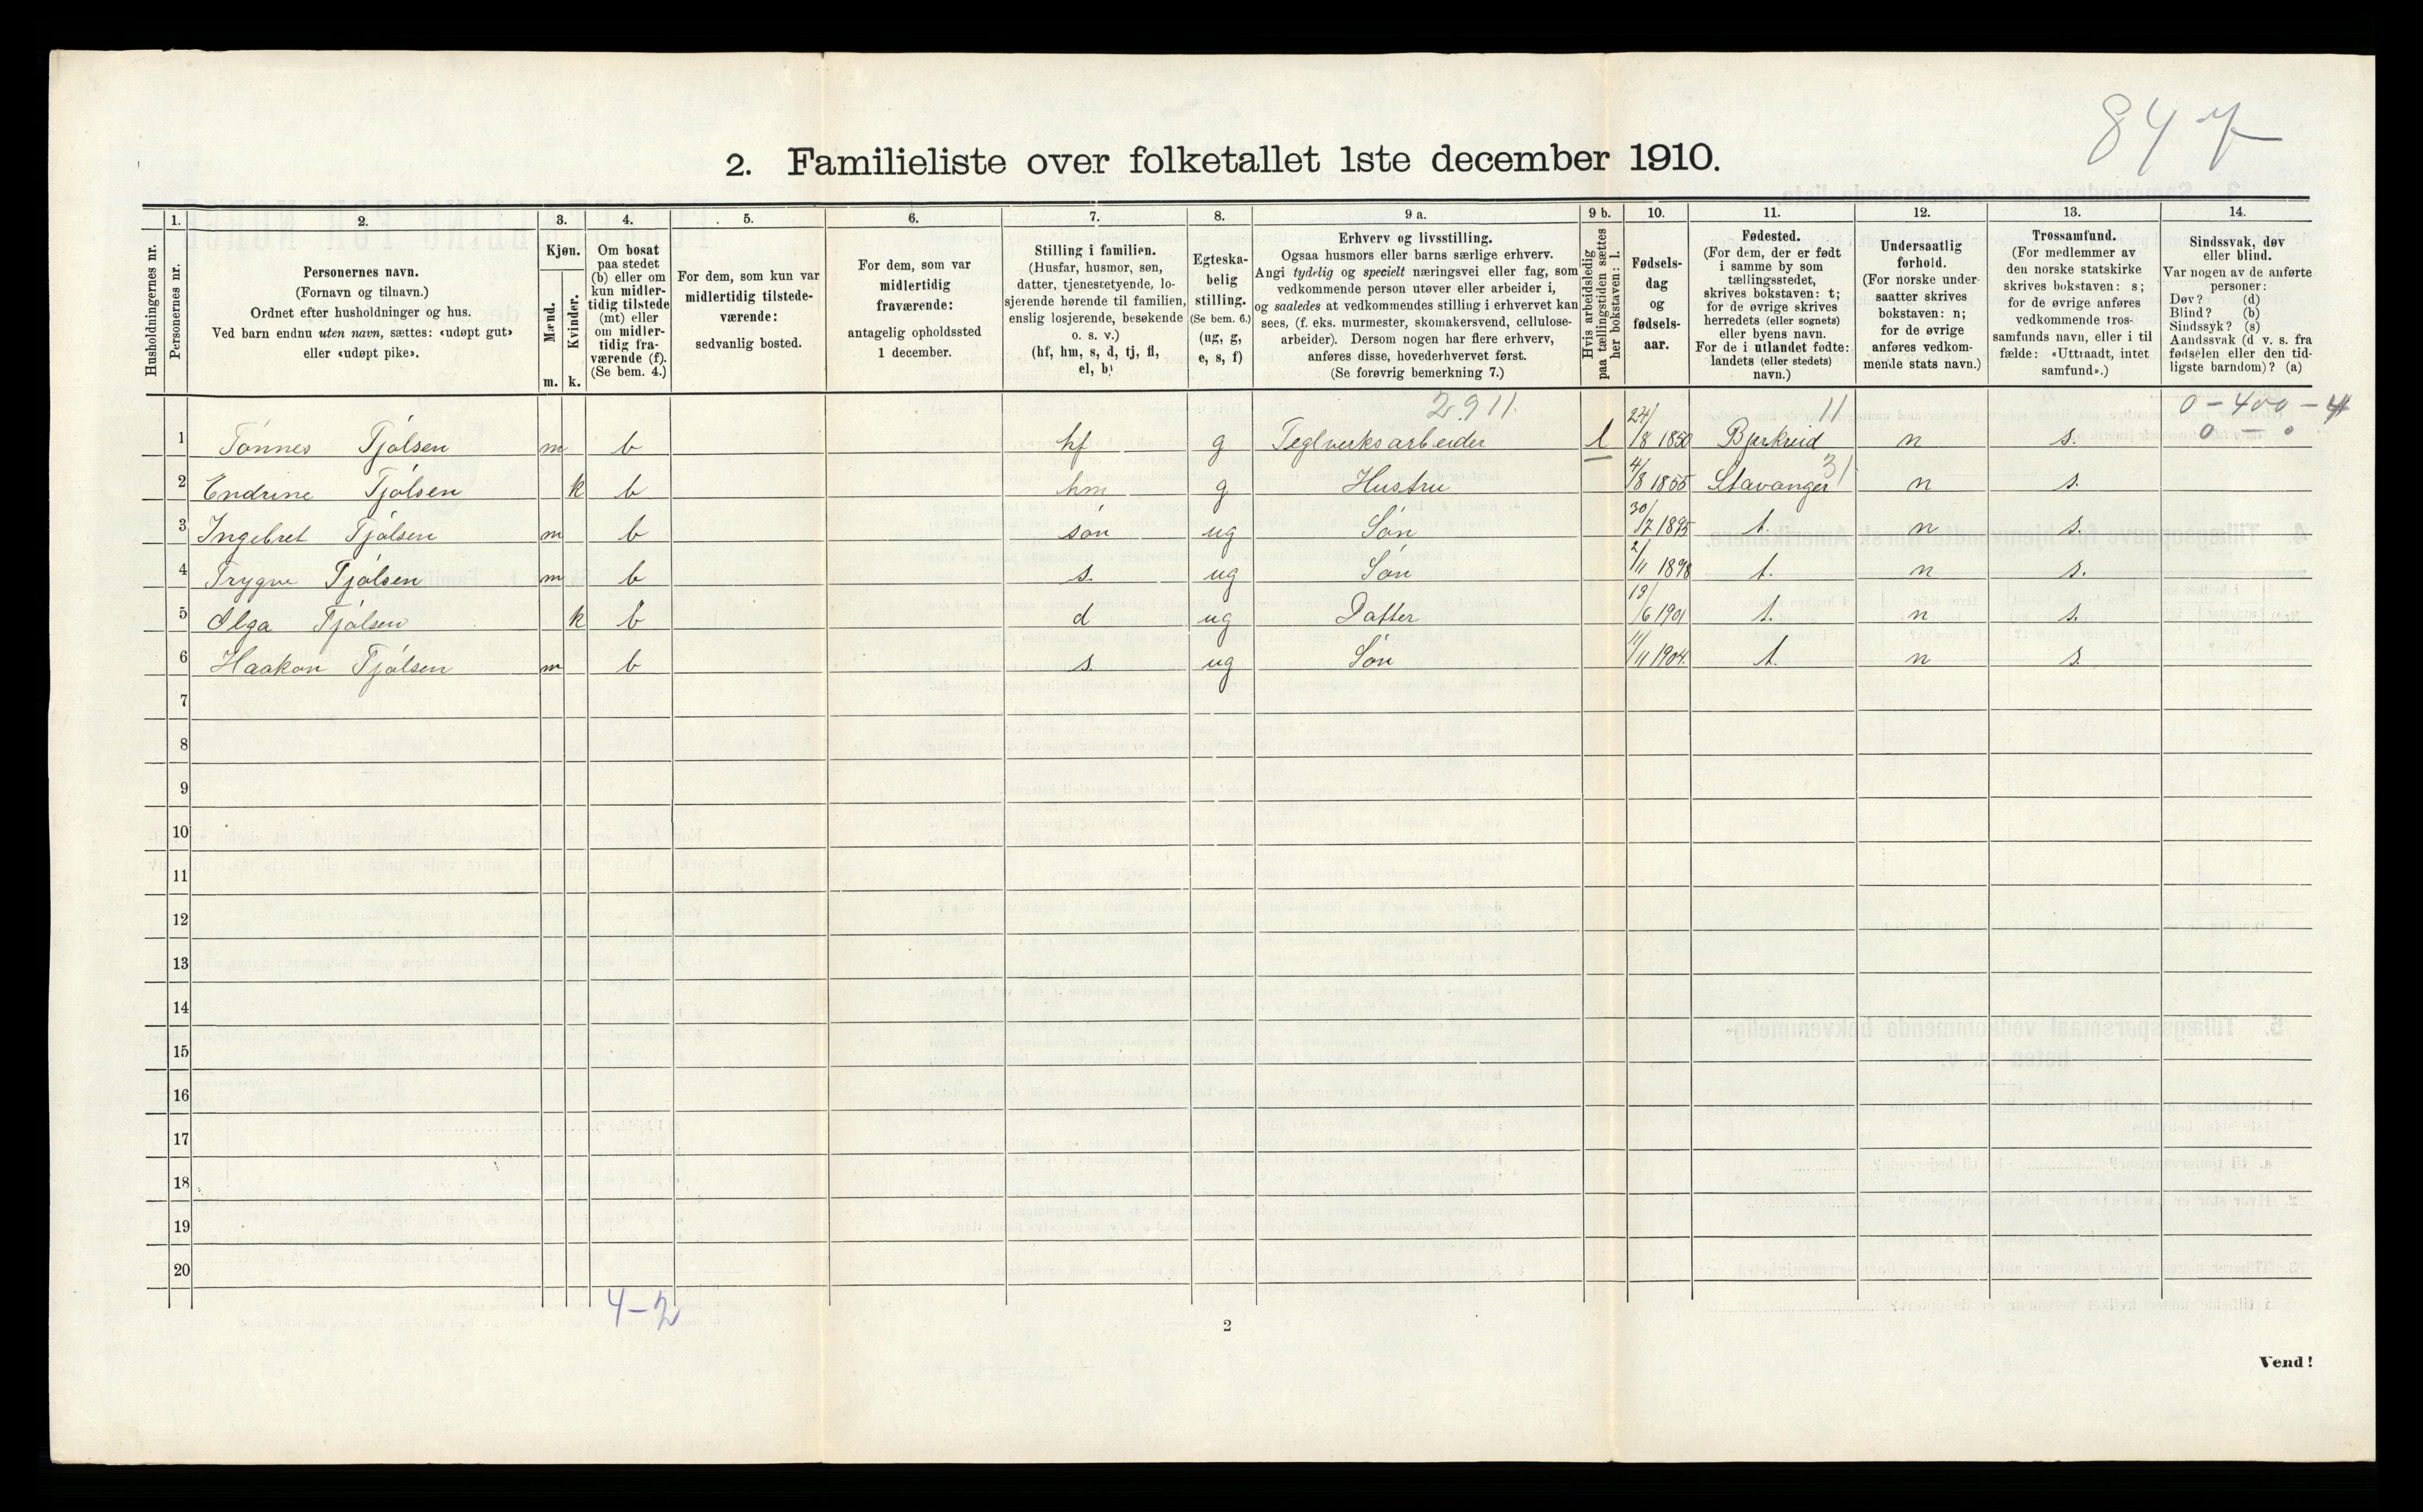 84
2. Familieliste over folketallet 1ste december 1910.
Husholdningernes nr.
1.
Personernes nr.
2.
Personernes navn.
(Fornavn og tilnavn.)
Ordnet efter husholdninger og hus.
Ved barn endnu uten navn, sættes: «udøpt gut»
eller «udøpt pike».
3.
Kjøn.
Mænd.
Kvinder.
m. k.
4.
Om bosat
paa stedet
(b) eller om
kun midler-
tidig tilstede
(mt) eller
om midler-
tidig fra-
værende (f).
(Se bem. 4.)
5.
For dem, som kun var
midlertidig tilstede-
værende:
sedvanlig bosted.
6.
For dem, som var
midlertidig
fraværende:
antagelig opholdssted
1 december.
7.
Stilling i familien.
(Husfar, husmor, søn,
datter, tjenestetyende, lo-
sjerende hørende til familien,
enslig losjerende, besøkende
o. s. v.)
(hf, hm, s, d, tj, fl,
el, b)
8.
Egteska-
belig
stilling.
(Se bem. 6.)
(ug, g,
e, s, f)
9 a.
Erhverv og livsstilling.
Ogsaa husmors eller barns særlige erhverv.
Angi tydelig og specielt næringsvei eller fag, som
vedkommende person utøver eller arbeider i,
og saaledes at vedkommendes stilling i erhvervet kan
sees, (f. eks. murmester, skomakersvend, cellulose-
arbeider). Dersom nogen har flere erhverv,
anføres disse, hovederhvervet først.
(Se forøvrig bemerkning 7.)
9 b.
Hvis arbeidsledig
paa tællingstiden sættes
her bokstaven: l.
10.
Fødsels-
dag
og
fødsels-
aar.
11.
Fødested.
(For dem, der er født
i samme by som
tællingsstedet,
skrives bokstaven: t;
for de øvrige skrives
herredets (eller sognets)
eller byens navn.
For de i utlandet fødte:
landets (eller stedets)
navn.)
12.
Undersaatlig
forhold.
(For norske under-
saatter skrives
bokstaven: n;
for de øvrige
anføres vedkom-
mende stats navn.)
13.
Trossamfund.
(For medlemmer av
den norske statskirke
skrives bokstaven: s;
for de øvrige anføres
vedkommende tros-
samfunds navn, eller i til
fælde: «Uttraadt, intet
samfund».)
14.
Sindssvak, døv
eller blind.
Var nogen av de anførte
personer:
Døv? (d)
Blind? (b)
Sindssyk? (s)
Aandssvak (d v. s. fra
fødselen eller den tid-
ligste barndom)? (a)
2911. 11 0-400-4
0 — 0
1 Tønnes Tjølsen m b hf g Teglverksarbeider l 24/8 1850 Bjerkreid n s.
31
2 Endrine Tjølsen k b hm g Hustru 4/8 1855 Stavanger n s.
3 Ingebret Tjølsen m b søn ug Søn 30/7 1895 t. n s.
4 Trygve Tjølsen m b s. ug Søn 2/11 1898 t. n s.
5 Olga Tjølsen k b d ug Datter 19/6 1901 t. n s.
6 Haakon Tjølsen m b s. ug Søn 11/11 1904. t. n s.
7
8
9
10
11
12
13
14
15
16
17
18
19
20
4-2
2
Vend!